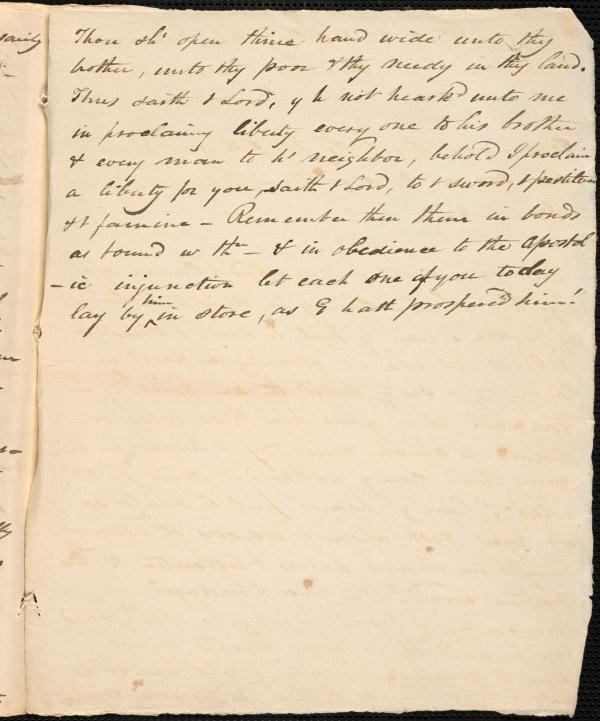 Thou sh' open thine hand wide unto thy
brother, unto thy poor & thy needy in thy land.
Thus saith t Lord, y h not heark'd unto me
in proclaimg liberty every one to his brother
& every man to h' neighbor, behold I proclaim
a liberty for you, saith t Lord, to t sword, t pestilen
& t famine – Remember then them in bonds
as bound w thm – & in obedience to the apostol
-ic injunction let each one of you today
lay by him in store, as G hath prospered him!